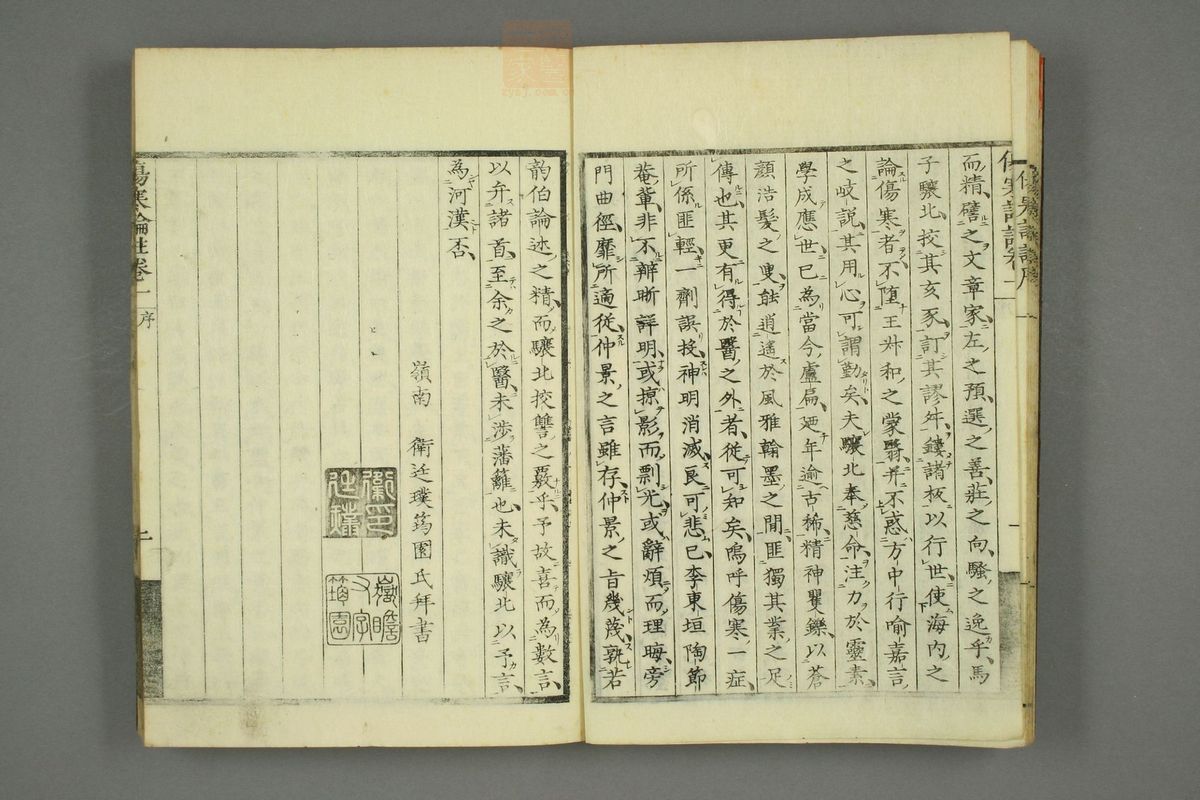 而精譬之文章家左之預選之善莊之向騷之逸乎馬
子驥北挍其亥豕訂其謬舛鋟諸板以行世使海内之
論傷寒者不墮王叔和之蒙翳并不惑方中行喻嘉言
之岐説其用心可謂勤矣夫驥北奉慈命注力於靈素
學成應世已為當今盧扁廼年逾古稀精神矍鑠以蒼
顔浩髮之叟能逍遙於風雅翰墨之間匪獨其業之足
傳也其更有得於醫之外者從可知矣嗚呼傷寒一症
所係匪輕一劑誤投神明消滅良可悲已李東垣陶節
菴輩非不辯晰詳明或掠影而剽光或辭煩而理晦旁
門曲徑靡所適從仲景之言雖存仲景之旨幾蔑孰若
韵伯論述之精而驥北挍讐之覈乎予故喜而為數言
以弁諸首至余之於醫未渉藩籬也未識驥北以予言
為河漢否
嶺南 衛廷璞筠園氏拜書
衛印廷璞
筠園
傷寒論註卷一 序